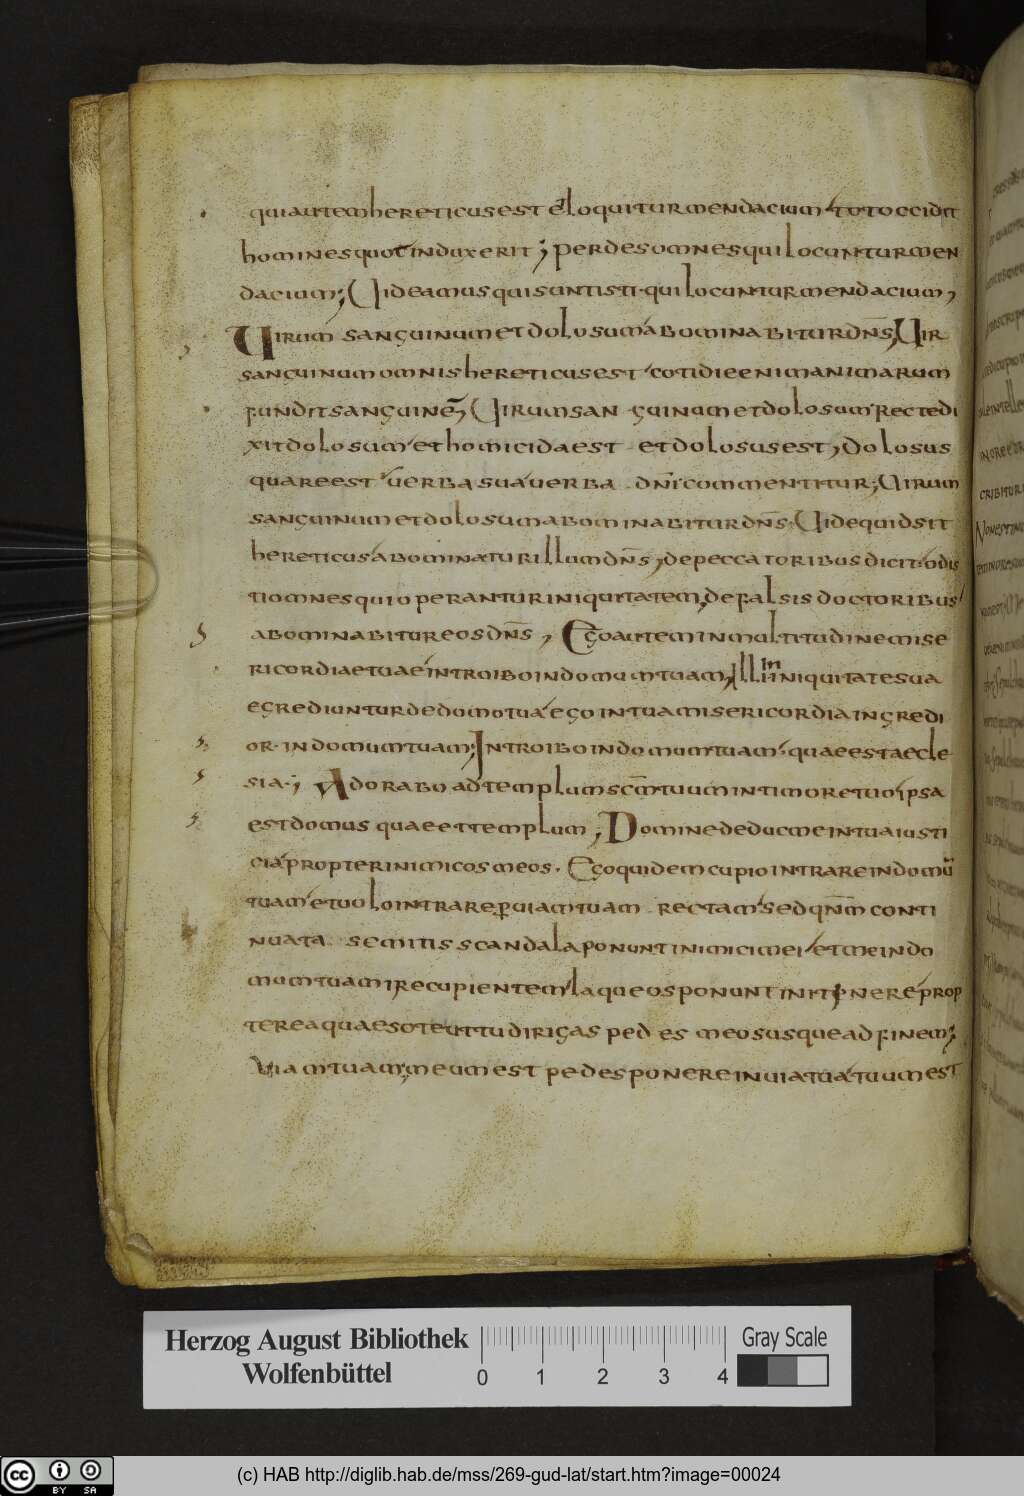 qui autem hereticus est et loquitur mendacium tot occidit
homines quot induxerit; perdes omnes qui locuntur men
dacium; Videamus qui sunt isti qui locuntur mendacium,
Virum sanguinum et dolosum abominabitur dns, Vir
sanguinum omnis hereticus est cotidie enim animarum
fundit sanguinem, Virum sanguinum et dolosum recte di
xit dolosum et homicida est et dolosus est, dolosus
quare est verba sua verba dni commentitur; Virum
sanguinum et dolosum abominabitur dns. Vide quid sit
hereticus abominatur illum dns, de peccatoribus dicit odis
ti omnes qui operantur iniquitatem, de falsis doctoribus
abominabitur eos dns, Ego autem in multitudine mise
ricordiae tuae introibo in domum tuam, Illi in iniquitate sua
egrediuntur de domo tua ego in tua misericordia ingredi
or in domum tuam; Introibo in domum tuam quae est aecle
sia; Adorabo ad templum scm tuum in timore tuo ipsa
est domus quae et templum, Domine deduc me in tua iusti
cia propter inimicos meos. Ego quidem cupio intrare in domū
tuam et volo intrare per viam tuam rectam sed qnm conti
nuata semitis scandala ponunt inimici mei et me in do
mum tuam recupientem laqueos ponunt in itinere prop
terea quaeso te ut tu dirigas pedes meos usque ad finem;
Viam tuam; meum est pedes ponere in via tua tuum est
Herzog August Bibliothek
Wolfenbüttel
0 1 2 3 4
Gray Scale
cc BY SA
(c) HAB http://diglib.hab.de/mss/269-gud-lat/start.htm?image=00024